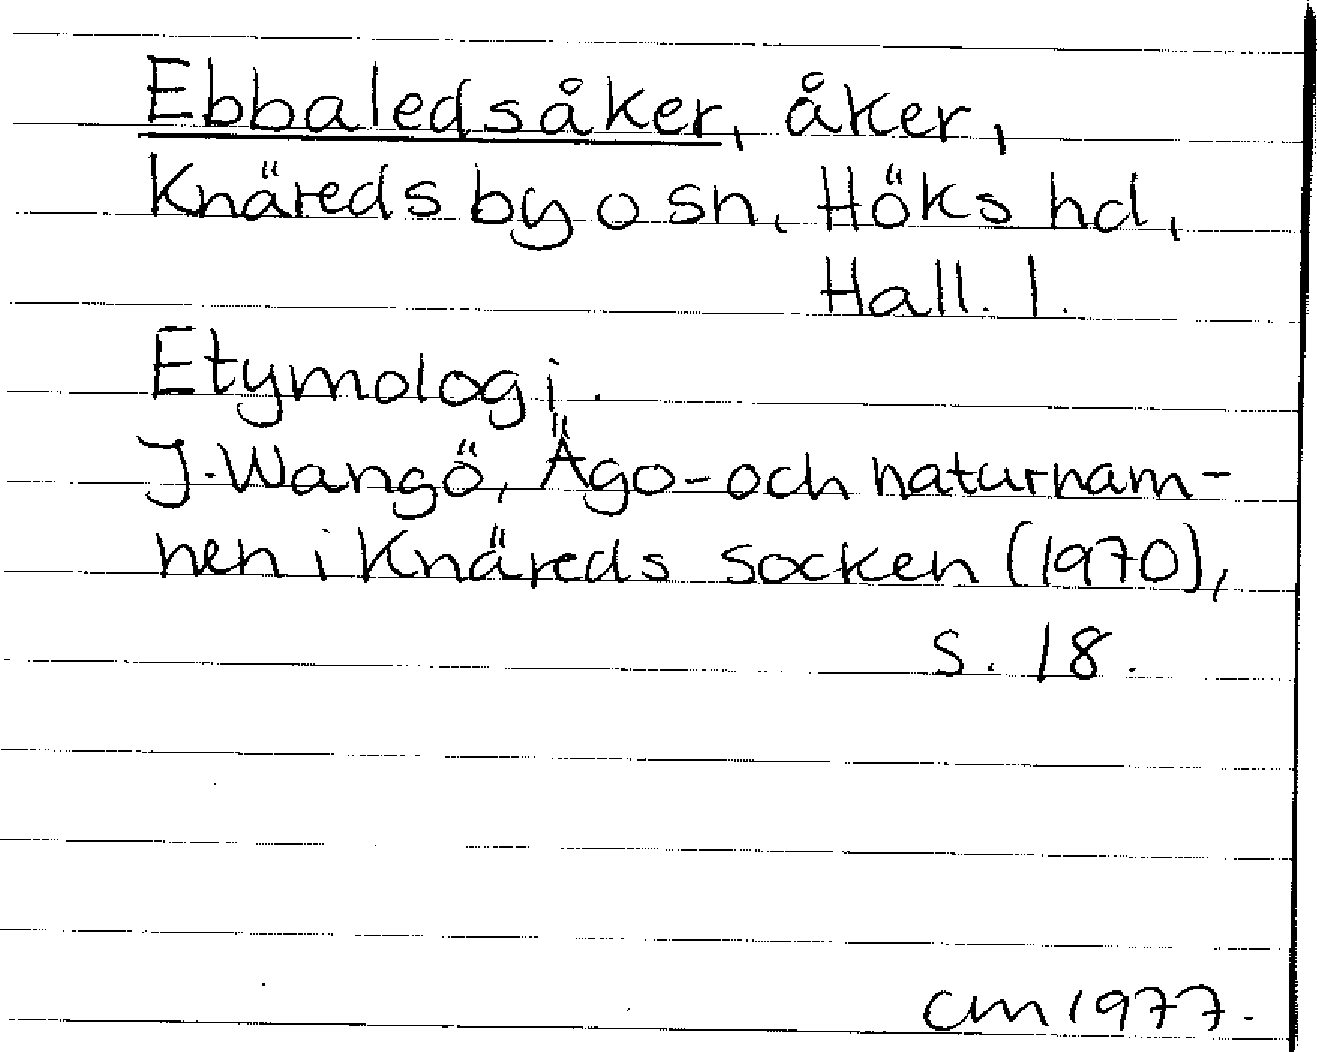 Ebbaledsåker, åker,
Knäreds by o sn, Höks hd,
Hall. l.
Etymologi.
J. Wangö, Ägo- och naturnam-
nen i Knäreds socken (1970),
s. 18.
CM 1977.